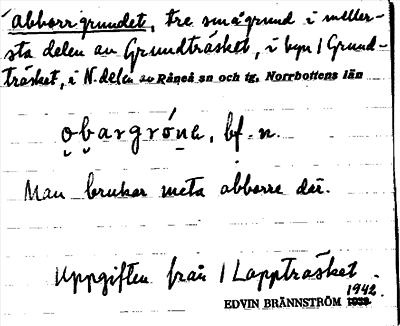 'abborrgrundet, tre smågrund i meller-
sta delen av Grundträsket, i byn 1 Grund-
träsket, i N. delen av Råneå sn och tg, Norrbottens län
bf. n.
Man brukar meta abborre där.
Uppgiften från 1 Lappträsket.
EDVIN BRÄNNSTRÖM 1942